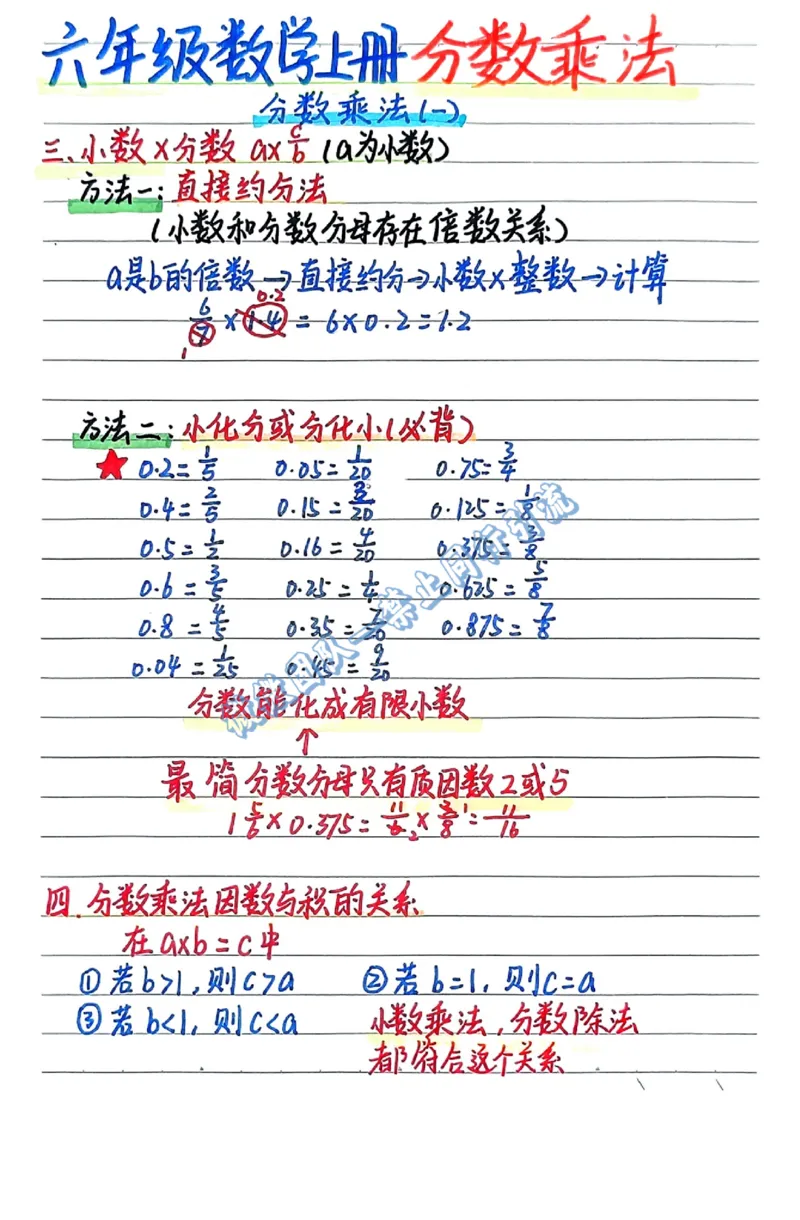 六年级数学上册 分数乘法
分数乘法(一)
三、小数×分数 a×c/b (a为小数)
方法一:直接约分法
(小数和分数分母存在倍数关系)
a是b的倍数→直接约分→小数×整数→计算
6/7 × 1.4 = 6×0.2=1.2
0.2
1
方法二:小化分或分化小(必背)
★ 0.2=1/5 0.05=1/20 0.75=3/4
0.4=2/5 0.15=3/20 0.125=1/8
0.5=1/2 0.16=4/20 0.375=3/8
0.6=3/5 0.25=1/4 0.625=5/8
0.8=4/5 0.35=7/20 0.875=7/8
0.04=1/25 0.45=9/20
分数能化成有限小数
↑
最简分数分母只有质因数2或5
1 5/6×0.375=11/6×3/8=11/16
2 1
四.分数乘法因数与积的关系
在a×b=c中
①若b>1,则c>a ②若b=1,则c=a
③若b<1,则c<a 小数乘法,分数除法
都符合这个关系